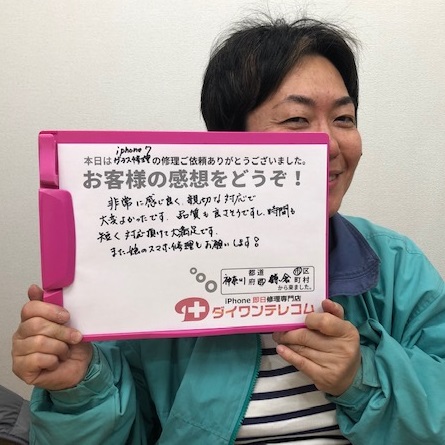 iphone 7
本日は ガラス修理 の修理ご依頼ありがとうございました。
お客様の感想をどうぞ！
非常に感じ良く、親切な対応で
大変よかったです。品質も良さそうですし、時間も
短く対応頂けて大満足です。
また他のスマホ修理もお願いします!
神奈川 都道府県 鎌倉 市区町村
から来ました。
iPhone 即日修理専門店
ダイワンテレコム